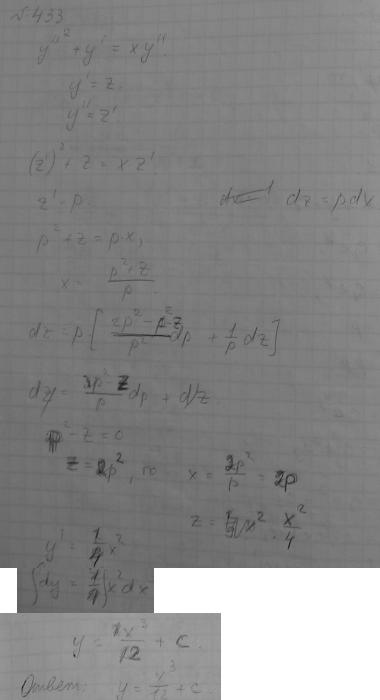 №433
y''² + y' = xy''.
y' = z.
y'' = z'
(z')² + z = x z'.
z' = p. dz = p dx
p² + z = p·x,
x = (p² + z)/p.
dz = p[(2p² - p² - z)/p² dp + 1/p dz]
dz = (p² - z)/p dp + dz.
p² - z = 0
z = p², то x = 2p²/p = 2p
z = x²/4
y' = 1/4 x²
∫dy = 1/4 ∫x² dx
y = 1x³/12 + c.
Ответ: y = x³/12 + c.